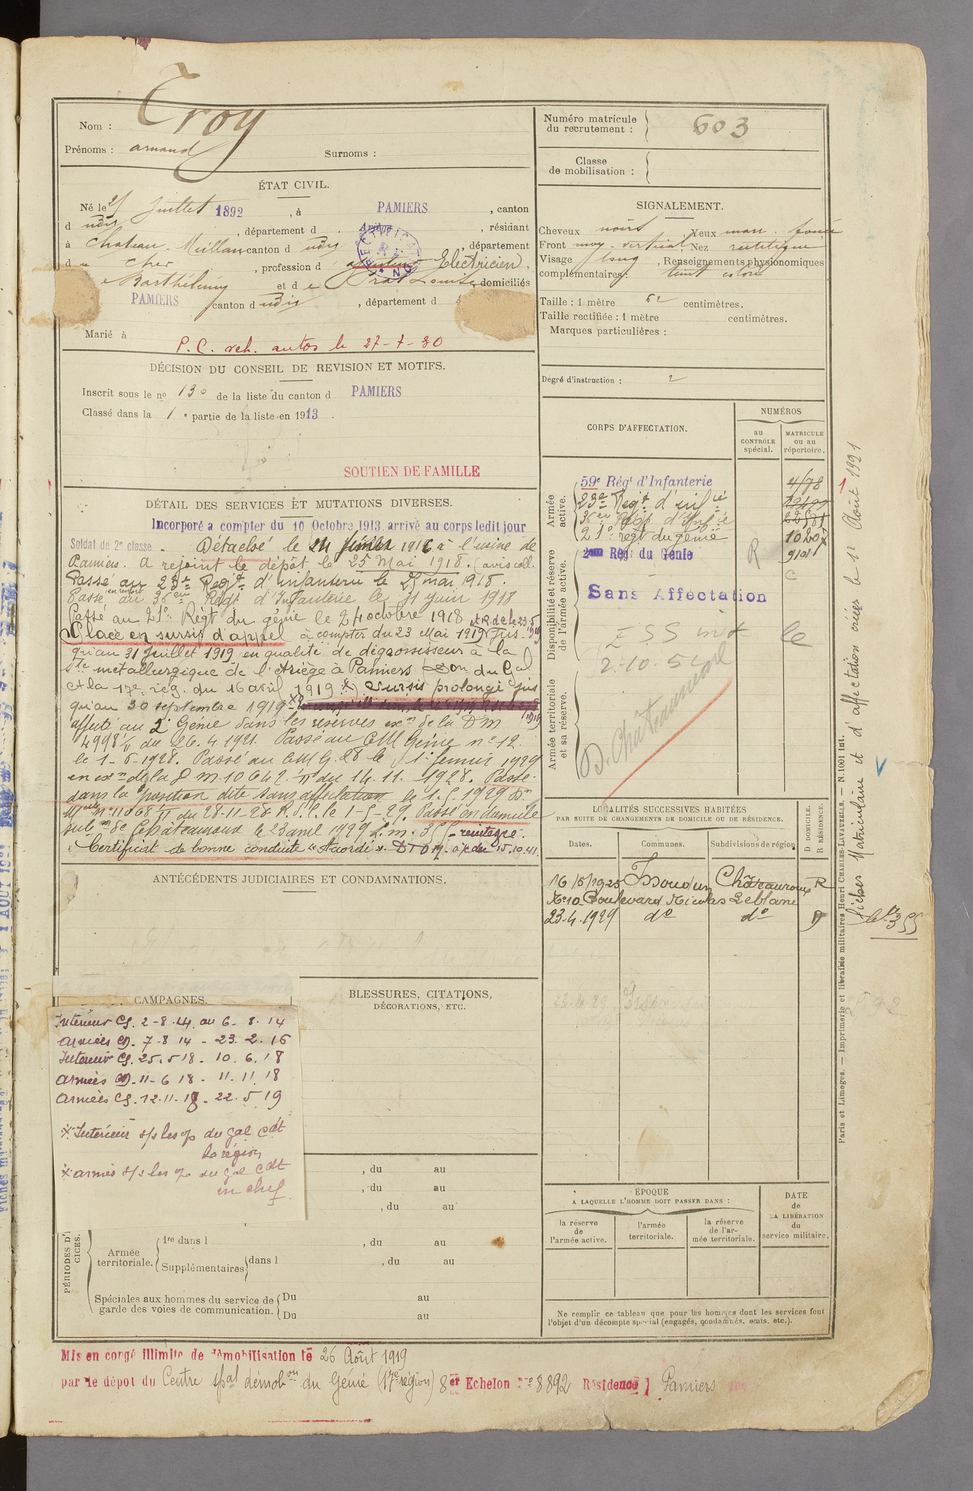 Nom : Troy
Prénoms : Armand Surnoms :
ÉTAT CIVIL.
Né le juillet 1892, à PAMIERS, canton
d udis, département d Ariège, résidant
à Château Meillan canton d udis, département
d u Cher, profession d Electricien,
e Barthélémy et d e domiciliés
PAMIERS canton d udis, département d
Marié à
P.C. reh. autos le 27-7-30
DÉCISION DU CONSEIL DE REVISION ET MOTIFS.
Inscrit sous le no 130 de la liste du canton d PAMIERS
Classé dans la 1e partie de la liste en 1913.
SOUTIEN DE FAMILLE
DÉTAIL DES SERVICES ET MUTATIONS DIVERSES.
Incorporé a compter du 10 Octobre 1913 arrivé au corps ledit jour
Soldat de 2e classe. Détaché le 24 février 1916 à l'usine de
Pamiers. A rejoint le dépôt le 25 Mai 1918.
Passé au 23e Regt d'infanterie le 25 mai 1918.
Passé au Regt d'Infanterie le 11 juin 1918
Passé au 21e Régt du génie le 24 octobre 1918
Placé en sursis d'appel à compter du 23 Mai 1919 jus
qu'au 31 Juillet 1919 en qualité de dégrossisseur à la
Sté métallurgique de l'Ariège à Pamiers. Don du Gal
Ct la 17e rég. du 16 avril 1919. Sursis prolongé jus
qu'au 30 septembre 1919
affecté au 2e Génie dans les réserves exon de la DM
4998 du 26.4.1921. Passé au CM Génie no 12.
le 1-6-1928. Passé au CMG 28 le 1er février 1929
en exon de la DM 10642 du 14.11.1928. Passé
dans la position dite sans affectation le 1.5.1929 Don
Mlle no 11068 du 28-11-28 R.S.P.C. le 1-5-29. Passé en domicile
sub on de Châteauroux le 23 avril 1929 réintégré.
"Certificat de bonne conduite "Accordé". 15.10.41.
ANTÉCÉDENTS JUDICIAIRES ET CONDAMNATIONS.
CAMPAGNES.
Intérieur CS. 2-8-14 au 6-8-14
Armées CD. 7-8 14 - 23.2.16
Intérieur CS. 25.5 18 - 10.6.18
Armées CD-11-6 18 - 11-11.18
Armées CS. 12-11-18 - 22.5 19
* Intérieur s/s les op du gal cdt
la région
* armées s/s les op du gal cdt
en chef
BLESSURES, CITATIONS,
DÉCORATIONS, ETC.
, du au
, du au
, du au
PÉRIODES D'
CICES.
Armée territoriale. 1re dans l , du au
Supplémentaires dans l , du au
Spéciales aux hommes du service de garde des voies de communication. Du au
Du au
Mis en congé illimité de démobilisation le 26 Août 1919
par le dépôt du Centre spal démobon du Génie (17e région) 8er Echelon no 8892 Résidence Pamiers
Numéro matricule du recrutement : 603
Classe de mobilisation :
SIGNALEMENT.
Cheveux noirs Yeux marr. foncé
Front moy. vertical Nez rectiligne
Visage long, Renseignements physionomiques
complémentaires : teint coloré
Taille : 1 mètre 62 centimètres.
Taille rectifiée : 1 mètre centimètres.
Marques particulières :
Degré d'instruction : 2
CORPS D'AFFECTATION.
NUMÉROS
AU CONTRÔLE spécial.
MATRICULE ou au répertoire.
Armée active.
59e Régt d'Infanterie 4/78
23e Regt d'infie
Regt d'Infie
21e régt du génie 10207
Disponibilité et réserve de l'armée active.
2me Rég. du Génie 9101
R
Sans Affectation
Armée territoriale et sa réserve.
D. Châteauroux
LOCALITÉS SUCCESSIVES HABITÉES
PAR SUITE DE CHANGEMENTS DE DOMICILE OU DE RÉSIDENCE.
Dates. Communes. Subdivisions de région. D DOMICILE. R RÉSIDENCE.
16/5/1925 Issoudun Châteauroux R
No 10 Boulevard Nicolas Leblanc
23-4-1929 do do D
ÉPOQUE
A LAQUELLE L'HOMME DOIT PASSER DANS :
la réserve de l'armée active.
l'armée territoriale.
la réserve de l'armée territoriale.
DATE de LA LIBÉRATION du service militaire.
Ne remplir ce tableau que pour les hommes dont les services font
l'objet d'un décompte spécial (engagés, condamnés, omis, etc.).
Paris et Limoges. — Imprimerie et librairie militaires Henri CHARLES-LAVAUZELLE. — N. 1001 int.
Fiches Matriculaire et d'affectation créées le 1er Août 1921